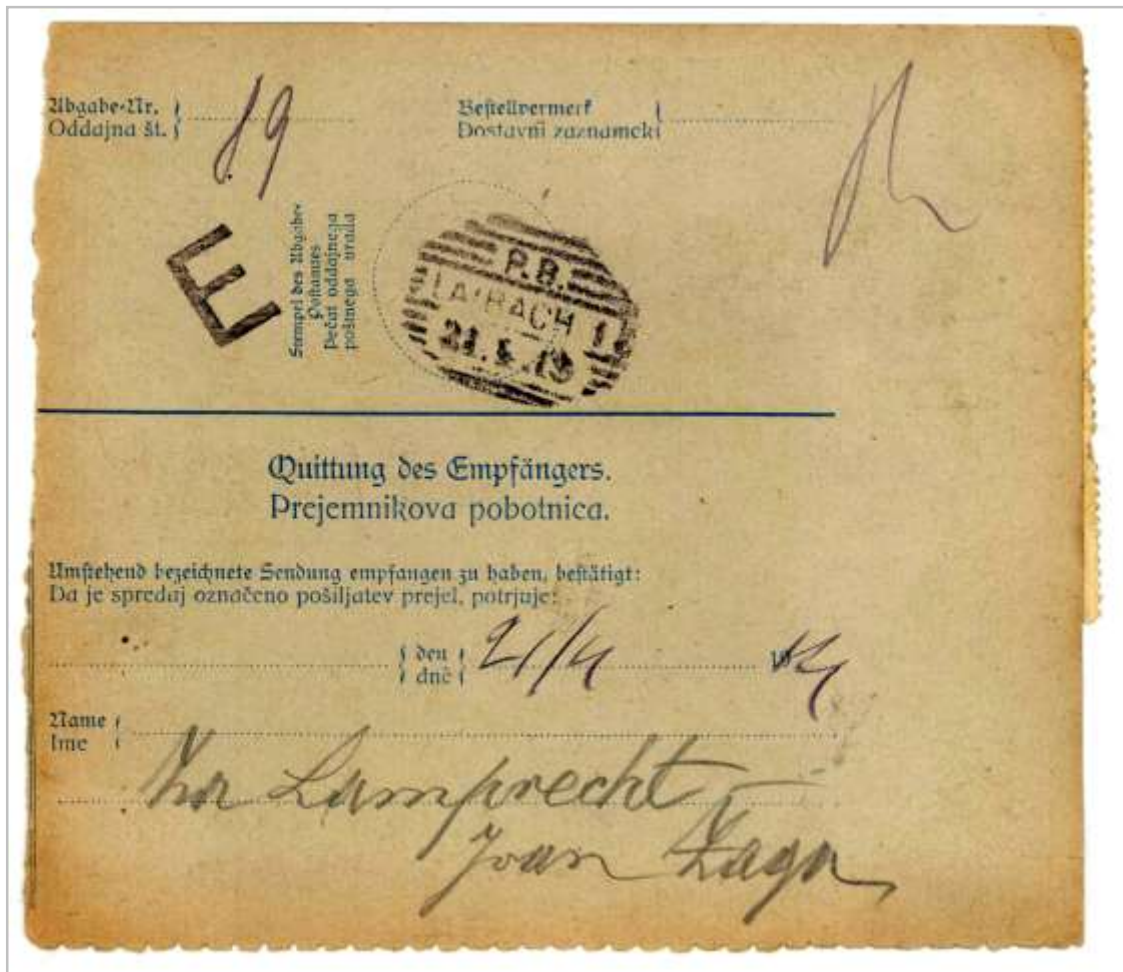 Abgabe-Nr.
Oddajna št.
19
Bestellvermerk
Dostavni zaznamek
E
Stempel des Abgabe-
Postamtes
Pečat oddajnega
poštnega urada
P.B.
LAIBACH 1
Quittung des Empfängers.
Prejemnikova pobotnica.
Umstehend bezeichnete Sendung empfangen zu haben, bestätigt:
Da je spredaj označeno pošiljatev prejel, potrjuje:
den
dné
21/4
Name
Ime
Za Lamprecht
Ivan Žaga